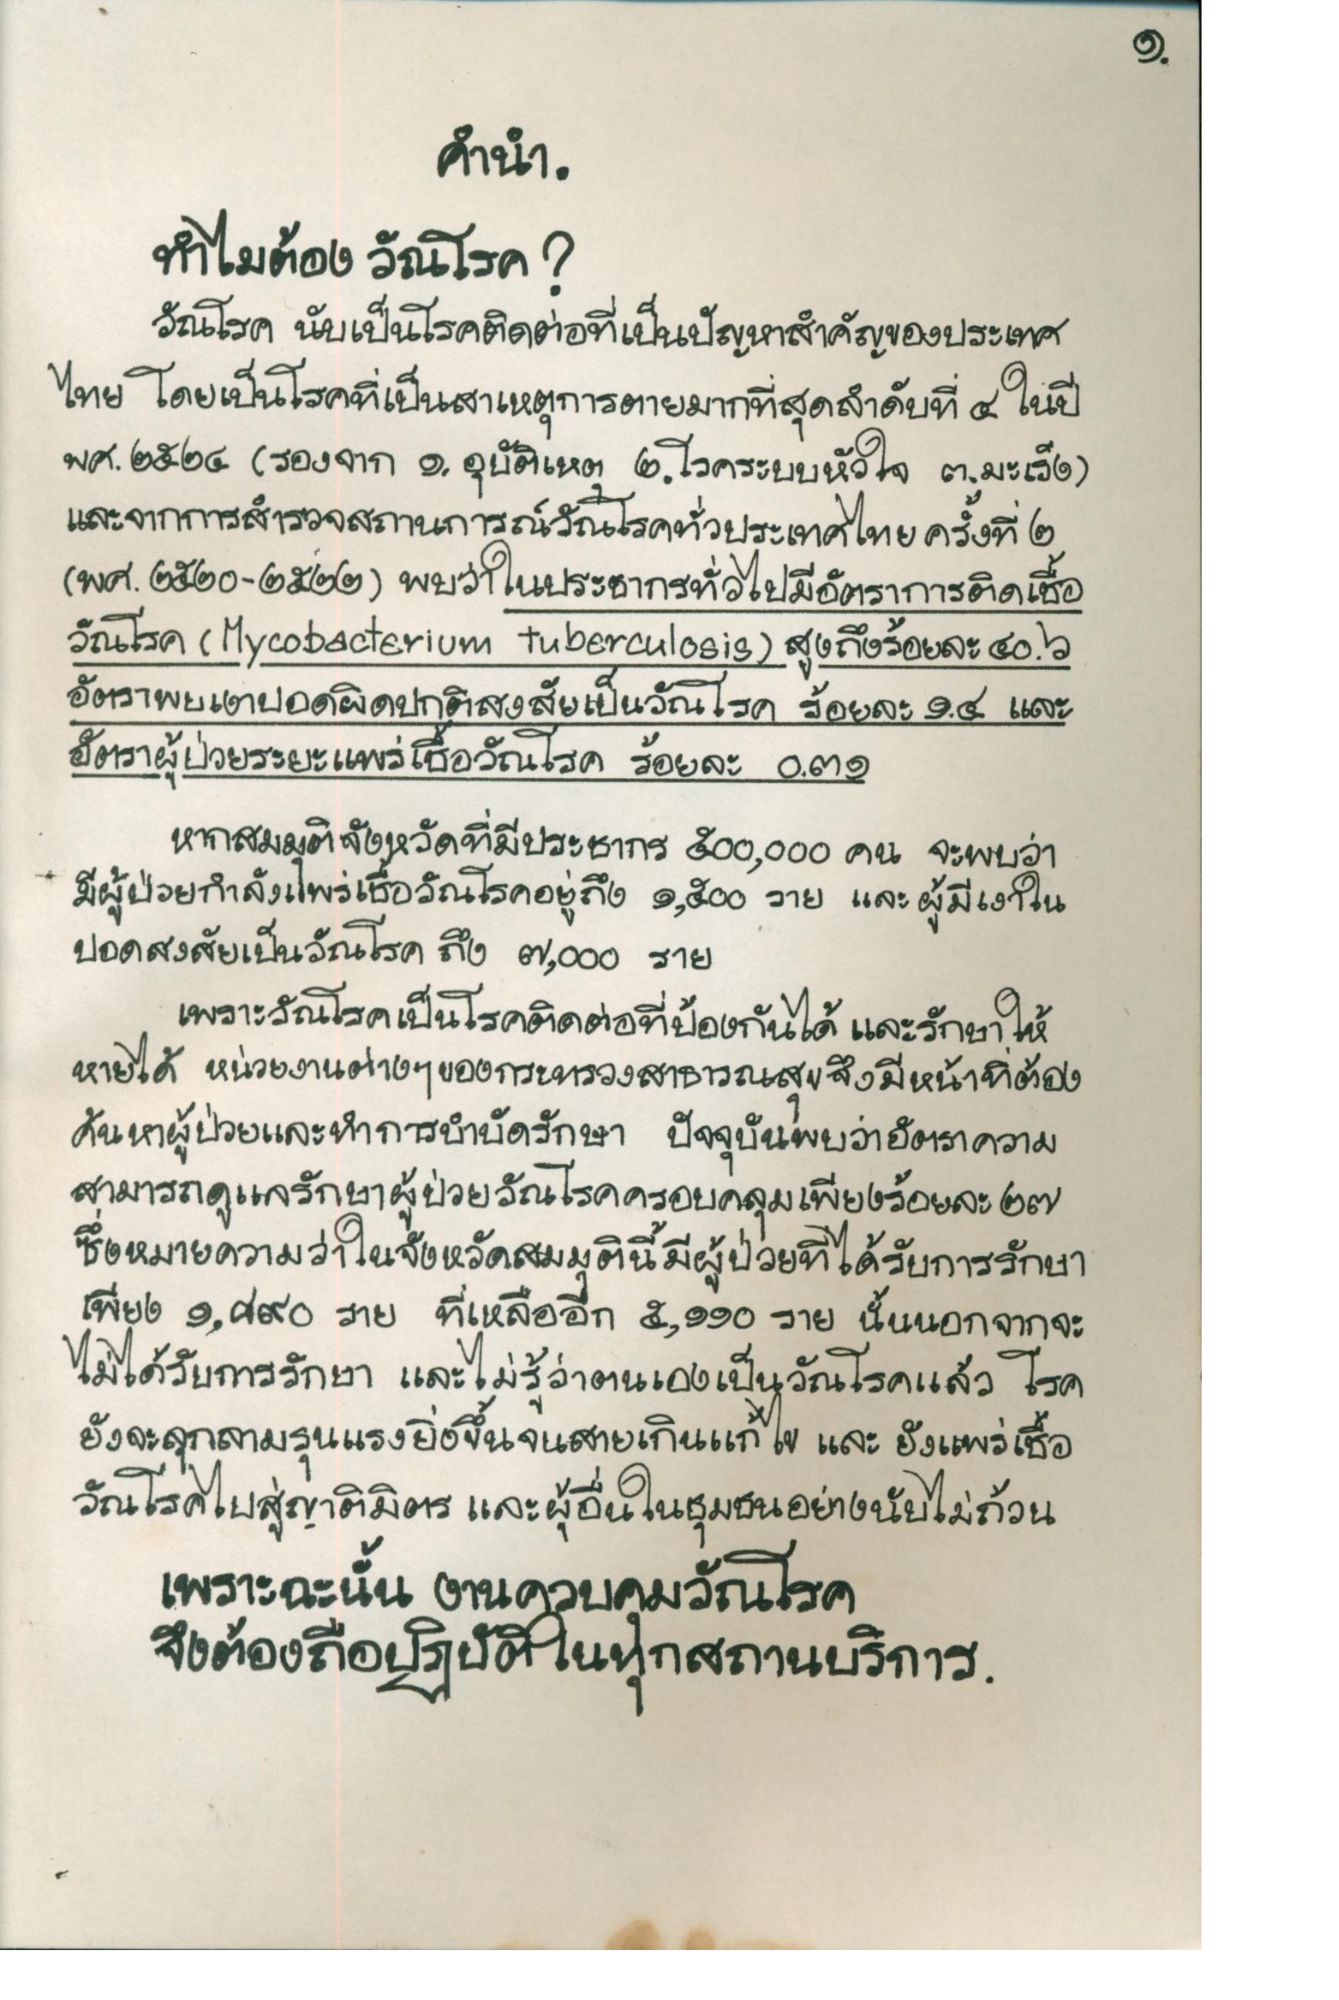 ๑.
คำนำ.
ทำไมต้อง วัณโรค ?
วัณโรค นับเป็นโรคติดต่อที่เป็นปัญหาสำคัญของประเทศ
ไทย โดยเป็นโรคที่เป็นสาเหตุการตายมากที่สุดลำดับที่ ๔ ในปี
พศ. ๒๕๒๔ (รองจาก ๑. อุบัติเหตุ ๒. โรคระบบหัวใจ ๓. มะเร็ง)
และจากการสำรวจสถานการณ์วัณโรคทั่วประเทศไทย ครั้งที่ ๒
(พศ. ๒๕๒๐-๒๕๒๒) พบว่าในประชากรทั่วไปมีอัตราการติดเชื้อ
วัณโรค (Mycobacterium tuberculosis) สูงถึงร้อยละ ๔๐.๖
อัตราพบเงาปอดผิดปกติสงสัยเป็นวัณโรค ร้อยละ ๑.๔ และ
อัตราผู้ป่วยระยะแพร่เชื้อวัณโรค ร้อยละ ๐.๓๑
หากสมมุติจังหวัดที่มีประชากร ๕๐๐,๐๐๐ คน จะพบว่า
มีผู้ป่วยกำลังแพร่เชื้อวัณโรคอยู่ถึง ๑,๕๐๐ ราย และ ผู้มีเงาใน
ปอดสงสัยเป็นวัณโรค ถึง ๗,๐๐๐ ราย
เพราะวัณโรคเป็นโรคติดต่อที่ป้องกันได้ และรักษาให้
หายได้ หน่วยงานต่างๆของกระทรวงสาธารณสุขจึงมีหน้าที่ต้อง
ค้นหาผู้ป่วยและทำการบำบัดรักษา ปัจจุบันพบว่าอัตราความ
สามารถดูแลรักษาผู้ป่วยวัณโรคครอบคลุมเพียงร้อยละ ๒๗
ซึ่งหมายความว่าในจังหวัดสมมุตินี้มีผู้ป่วยที่ได้รับการรักษา
เพียง ๑,๘๙๐ ราย ที่เหลืออีก ๕,๑๑๐ ราย นั้นนอกจากจะ
ไม่ได้รับการรักษา และไม่รู้ว่าตนเองเป็นวัณโรคแล้ว โรค
ยังจะลุกลามรุนแรงยิ่งขึ้นจนสายเกินแก้ไข และ ยังแพร่เชื้อ
วัณโรคไปสู่ญาติมิตร และผู้อื่นในชุมชนอย่างนับไม่ถ้วน
เพราะฉะนั้น งานควบคุมวัณโรค
จึงต้องถือปฏิบัติในทุกสถานบริการ.